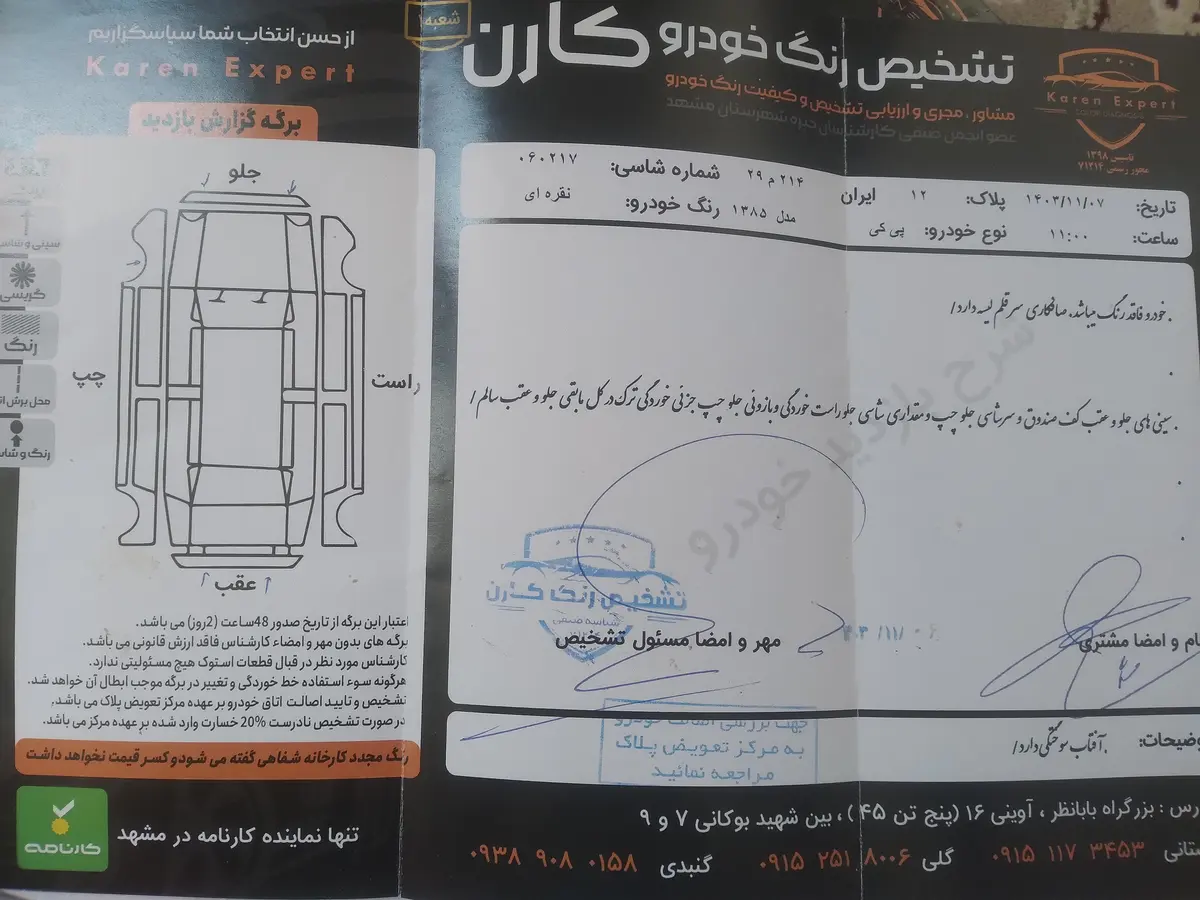 شعبه ۱
تشخیص رنگ خودرو کارن
مشاور ، مجری و ارزیابی تشخیص و کیفیت رنگ خودرو
عضو انجمن صنفی کارشناسان خبره شهرستان مشهد
Karen Expert
تاسیس ۱۳۹۸
مجوز رسمی ۷۱۲۱۴
تاریخ: ۱۴۰۳/۱۱/۰۷ پلاک: ۱۲ ایران ۲۱۴ م ۲۹ شماره شاسی: ۰۶۰۲۱۷
ساعت: ۱۱:۰۰ نوع خودرو: پی کی مدل ۱۳۸۵ رنگ خودرو: نقره ای
. خودرو فاقد رنگ میباشد. صافکاری سر قلم لیسه دارد/
. سینی های جلو و عقب کف صندوق و سرشاسی جلو چپ و مقداری شاسی جلو راست خوردگی و بازوئی جلو چپ جزئی خوردگی ترک در کل مابقی جلو و عقب سالم/
شرح بازدید خودرو
تشخیص رنگ کارن
شناسه صنفی
نام و امضا مشتری
مهر و امضا مسئول تشخیص
توضیحات: . آفتاب سوختگی دارد/
جهت بررسی اصالت خودرو
به مرکز تعویض پلاک
مراجعه نمائید
آدرس : بزرگراه بابانظر ، آوینی ۱۶ (پنج تن ۴۵ ) ، بین شهید بوکانی ۷ و ۹
۰۹۱۵ ۱۱۷ ۳۴۵۳ گلی ۰۹۱۵ ۲۵۱ ۸۰۰۶ گنبدی ۰۹۳۸ ۹۰۸ ۰۱۵۸
از حسن انتخاب شما سپاسگزاریم
Karen Expert
برگه گزارش بازدید
جلو
راست
چپ
عقب
سینی و شاسی
گریسی
رنگ
محل برش
رنگ و شاسی
اعتبار این برگه از تاریخ صدور 48ساعت (2روز) می باشد.
برگه های بدون مهر و امضاء کارشناس فاقد ارزش قانونی می باشد.
کارشناس مورد نظر در قبال قطعات استوک هیچ مسئولیتی ندارد.
هرگونه سوء استفاده خط خوردگی و تغییر در برگه موجب ابطال آن خواهد شد.
تشخیص و تایید اصالت اتاق خودرو بر عهده مرکز تعویض پلاک می باشد.
در صورت تشخیص نادرست 20% خسارت وارد شده بر عهده مرکز می باشد.
رنگ مجدد کارخانه شفاهی گفته می شود و کسر قیمت نخواهد داشت
تنها نماینده کارنامه در مشهد
کارنامه